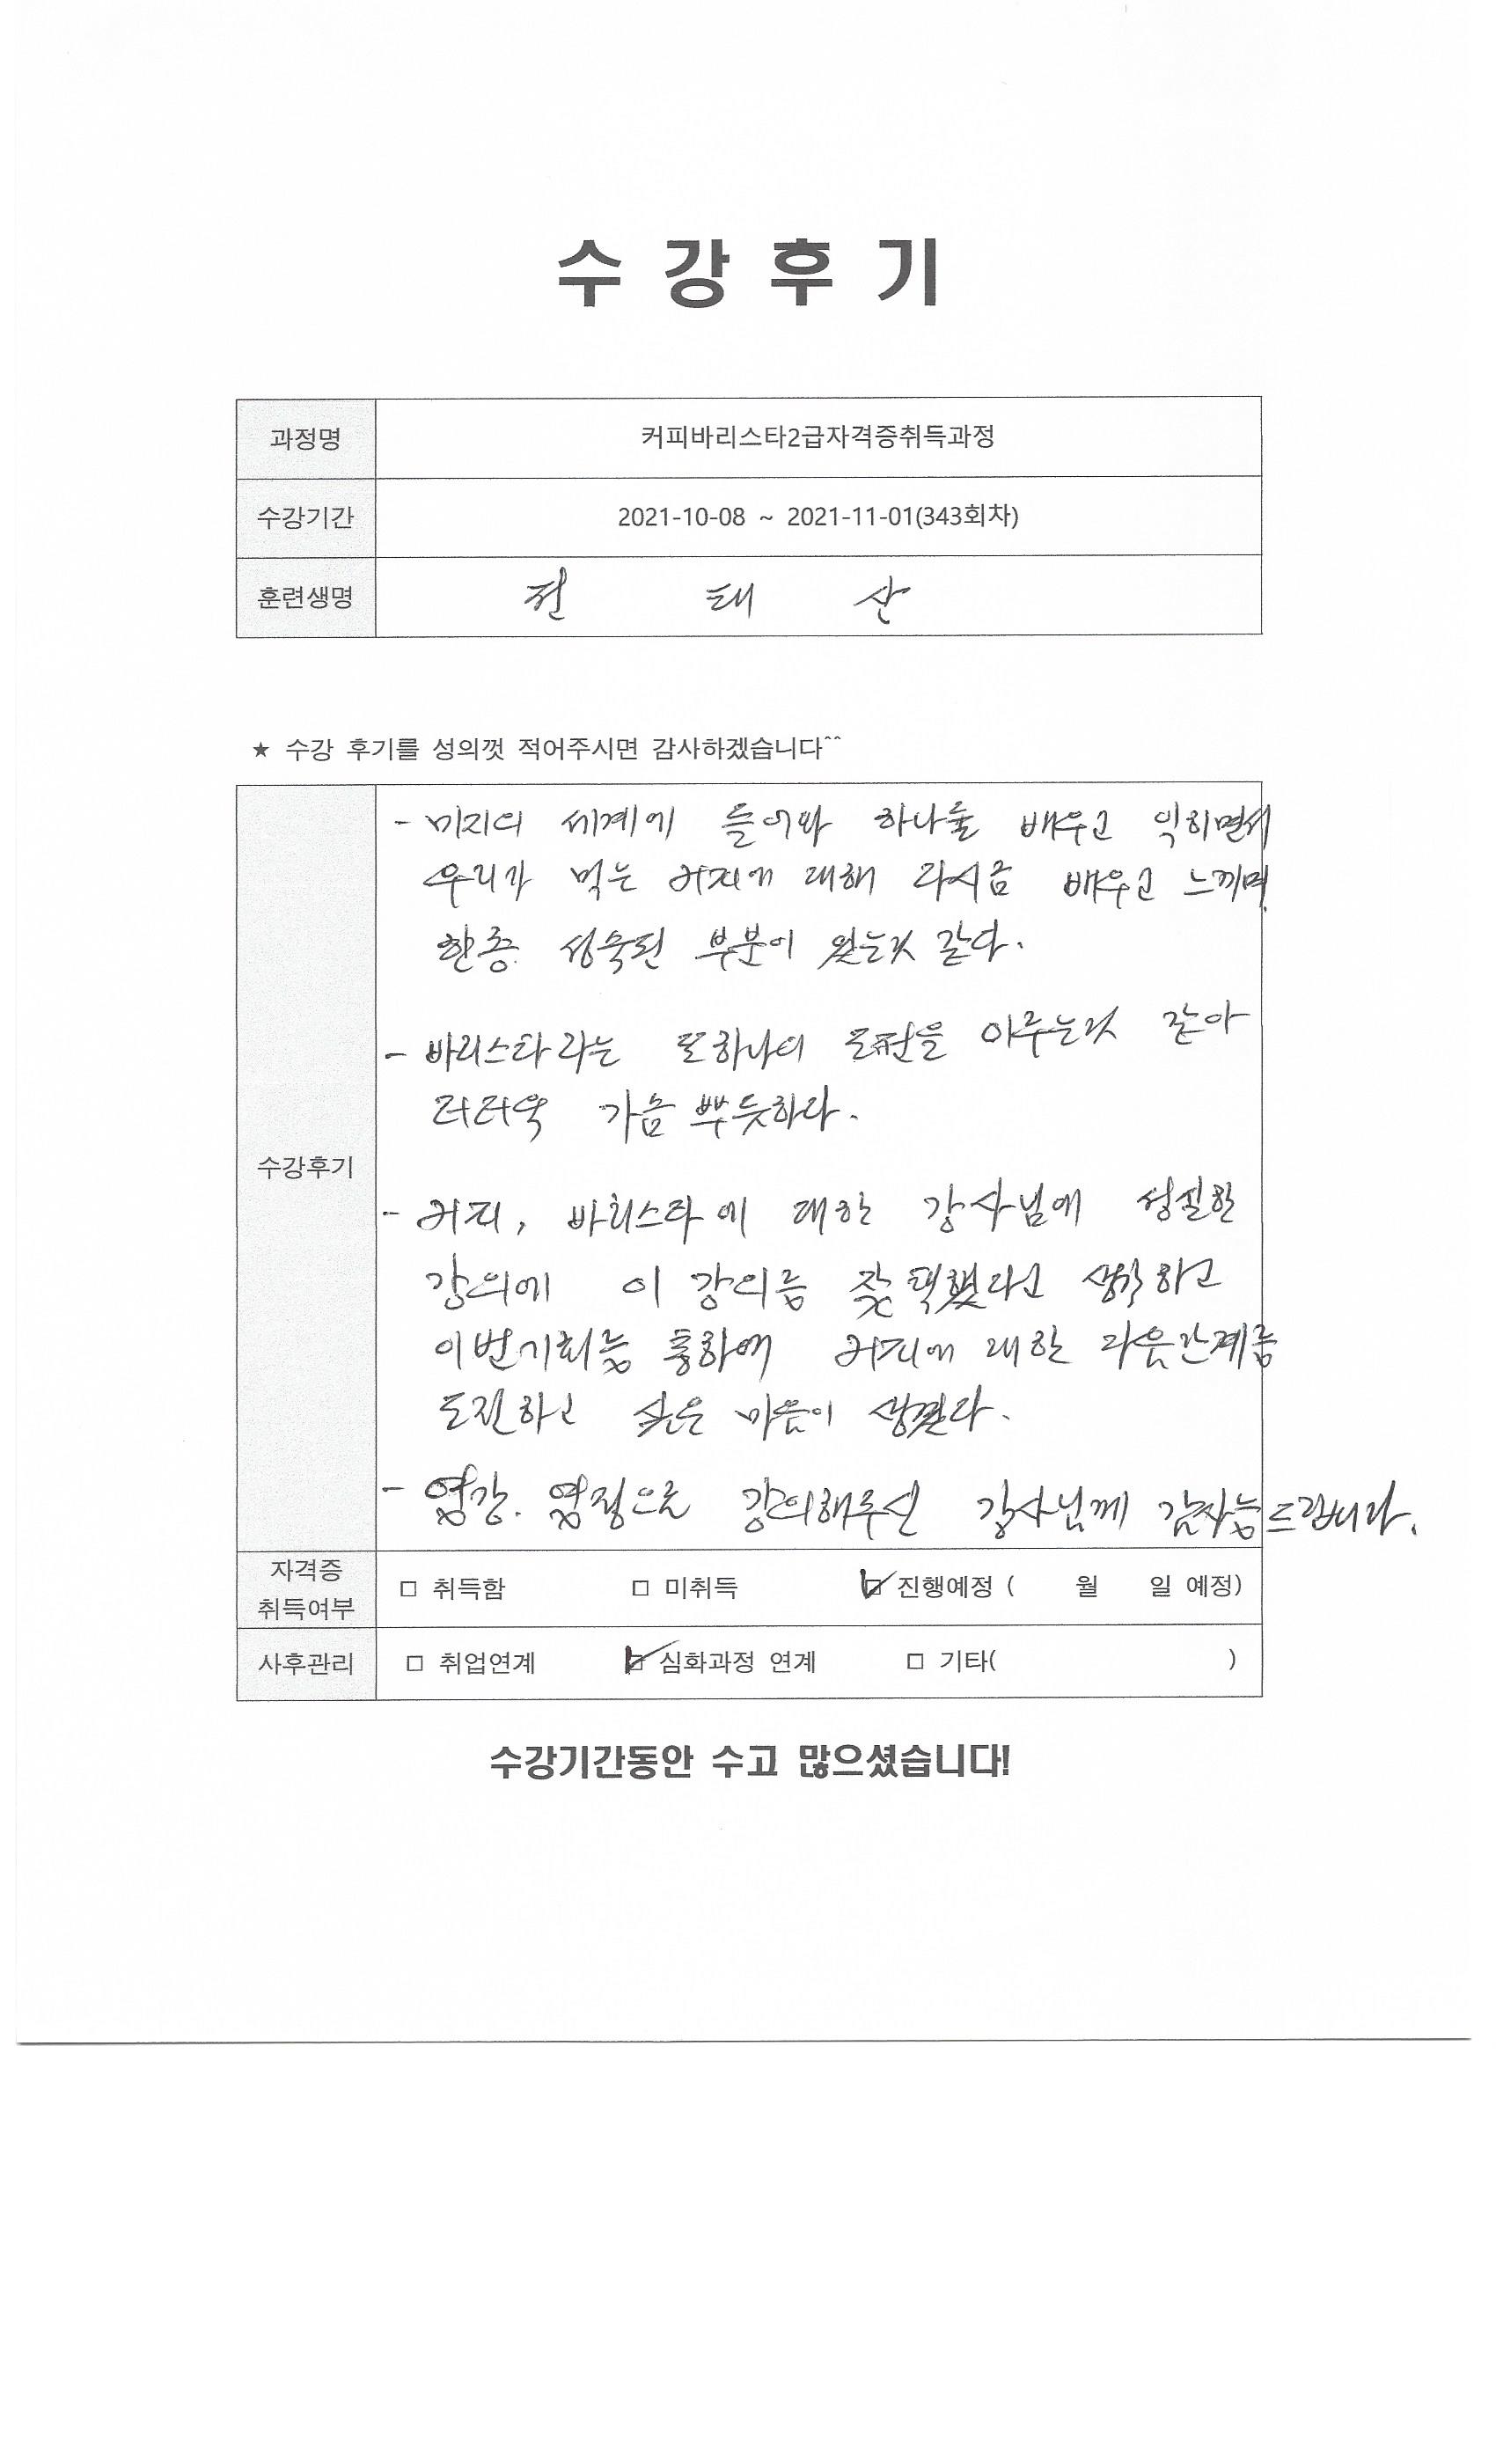 수 강 후 기
과정명 커피바리스타2급자격증취득과정
수강기간 2021-10-08 ~ 2021-11-01(343회차)
훈련생명 전 태 산
★ 수강 후기를 성의껏 적어주시면 감사하겠습니다^^
수강후기
- 미지의 세계에 들어와 하나둘 배우고 익히면서
우리가 먹는 커피에 대해 다시금 배우고 느끼며
한층 성숙된 부분이 있는것 같다.
- 바리스타라는 또하나의 도전을 이루는것 같아
더더욱 가슴 뿌듯하다.
- 커피, 바리스타에 대한 강사님에 성실한
강의에 이 강의를 잘 택했다고 생각하고
이번기회를 통하여 커피에 대한 다음단계를
도전하고 싶은 마음이 생겼다.
- 열강. 열정으로 강의해주신 강사님께 감사를 드립니다.
자격증
취득여부 □ 취득함 □ 미취득 ☑ 진행예정 ( 월 일 예정)
사후관리 □ 취업연계 ☑ 심화과정 연계 □ 기타( )
수강기간동안 수고 많으셨습니다!